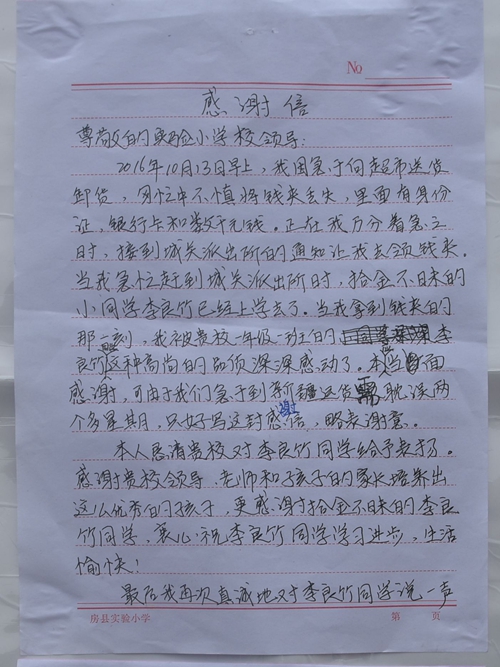 No
感谢信
尊敬的实验小学校领导：
2016年10月13日早上，我因急于向超市送货
卸货，匆忙中不慎将钱夹丢失，里面有身份
证，银行卡和数千元钱。正在我万分着急之
时，接到城关派出所的通知让我去领钱夹。
当我急忙赶到城关派出所时，拾金不昧的
小同学李良竹已经上学去了。当我拿到钱夹的
那一刻，我被贵校一年级一班的李
良竹这种高尚的品质深深感动了。本应当面
感谢，可由于我们急于到新疆送货，耽误两
个多星期，只好写这封感谢信，略表谢意。
本人恳请贵校对李良竹同学给予表扬。
感谢贵校领导、老师和孩子的家长培养出
这么优秀的孩子，更感谢拾金不昧的李良
竹同学，衷心祝李良竹同学学习进步，生活
愉快！
最后我再次真诚地对李良竹同学说一声
房县实验小学 第 页